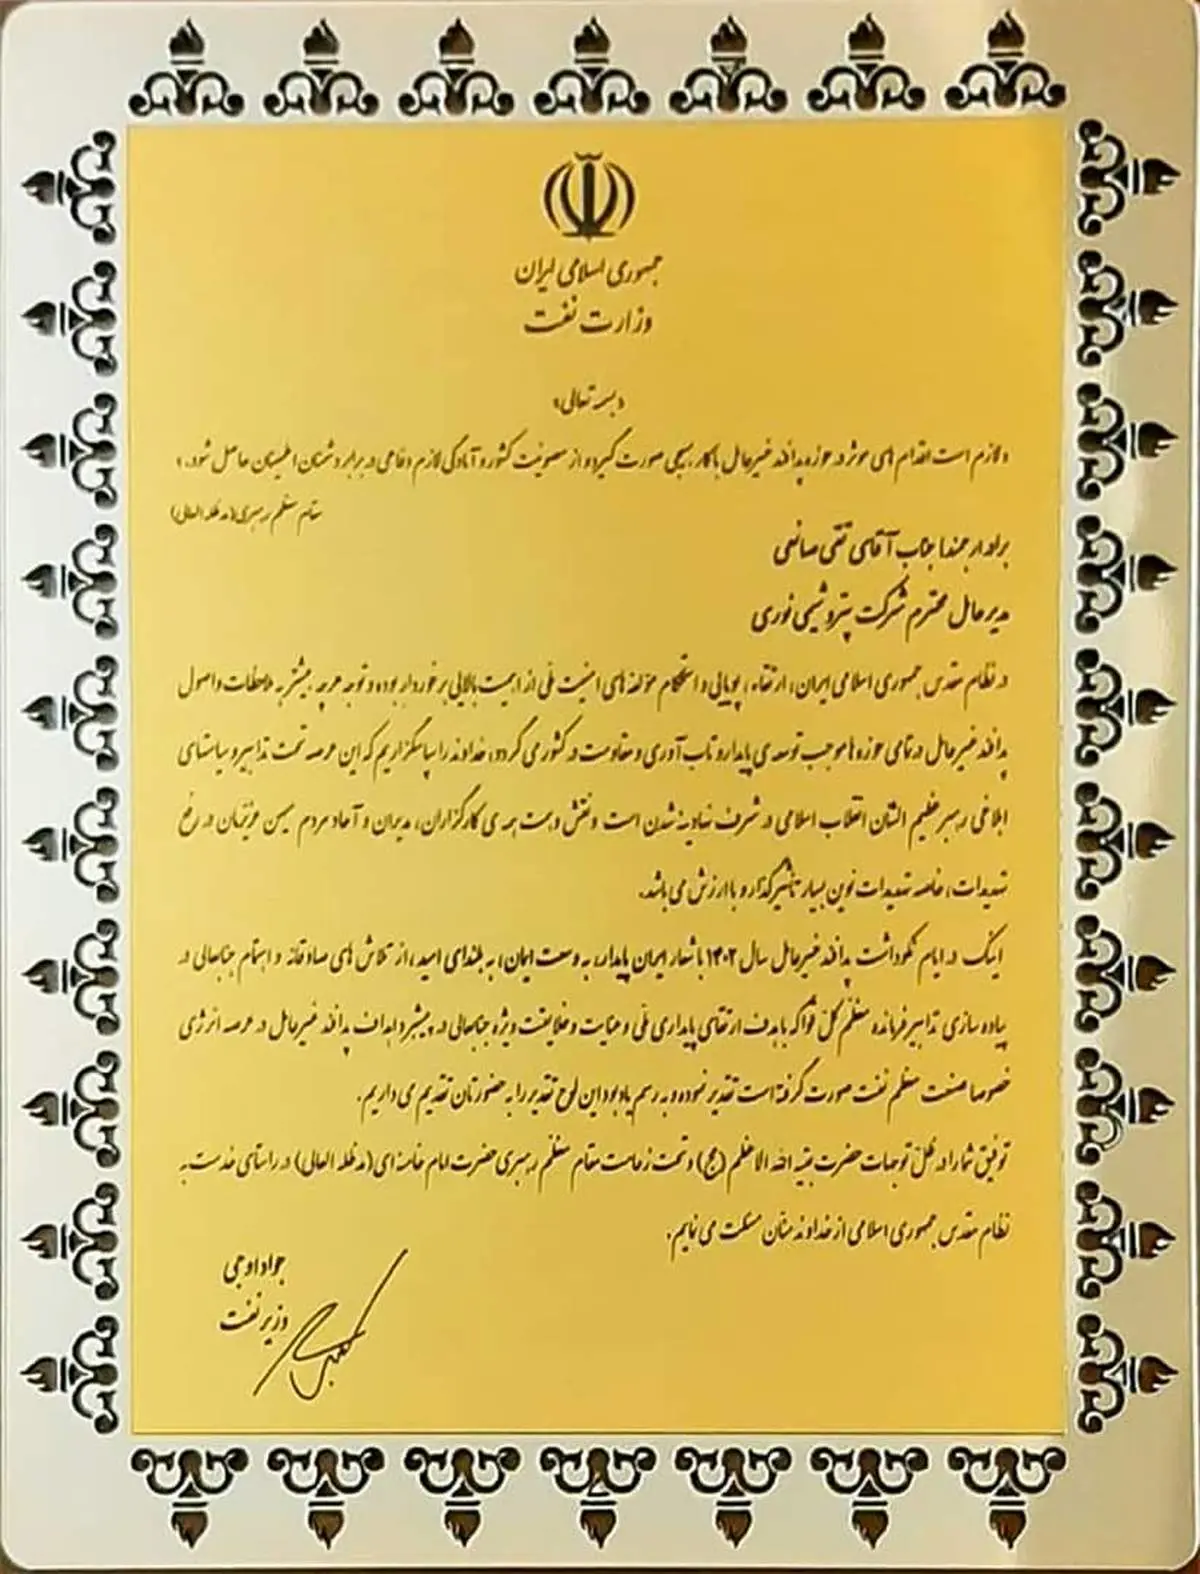 جمهوری اسلامی ایران
وزارت نفت
«بسمه تعالی»
«لازم است اقدام های موثر در حوزه پدافند غیرعامل با کار بسیجی صورت گیرد و از مصونیت کشور و آمادگی لازم دفاعی در برابر دشمنان اطمینان حاصل شود.»
مقام معظم رهبری (مدظله العالی)
برادر ارجمند! جناب آقای تقی صانعی
مدیرعامل محترم شرکت پتروشیمی نوری
در نظام مقدس جمهوری اسلامی ایران، ارتقاء، پویایی و استحکام مؤلفه های امنیت ملی از اهمیت بالایی برخوردار بوده و توجه هرچه بیشتر به ملاحظات و اصول
پدافند غیرعامل در تمامی حوزه ها موجب توسعه ی پایدار و تاب آوری و مقاومت در کشور می گردد، خداوند را سپاسگزاریم که این عرصه تحت تدابیر و سیاستهای
ابلاغی رهبر عظیم الشان انقلاب اسلامی در شرف نهادینه شدن است و نقش و همت همه ی کارگزاران، مدیران و آحاد مردم میهن عزیزمان در رفع
تهدیدات، خاصه تهدیدات نوین بسیار تأثیرگذار و با ارزش می باشد.
اینک در ایام نکوداشت پدافند غیرعامل سال ۱۴۰۲ با شعار ایران پایدار، به وسعت ایمان، به بلندای امید، از تلاش های صادقانه و اهتمام جنابعالی در
پیاده سازی تدابیر فرمانده معظم کل قوا که با هدف ارتقای پایداری ملی و عنایت و خلاقیت ویژه جنابعالی در پیشبرد اهداف پدافند غیرعامل در عرصه انرژی
خصوصا صنعت معظم نفت صورت گرفته است تقدیر نموده و به رسم یادبود این لوح تقدیر را به حضورتان تقدیم می داریم.
توفیق شما را در ظل توجهات حضرت بقیه الله الاعظم (عج) و تحت زعامت مقام معظم رهبری حضرت امام خامنه ای (مدظله العالی) در راستای خدمت به
نظام مقدس جمهوری اسلامی از خداوند منان مسئلت می نمایم.
جواد اوجی
وزیر نفت